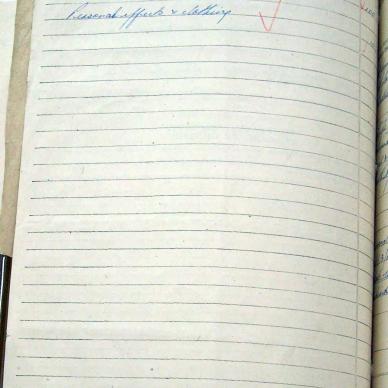 Personal effects & clothing